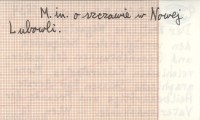 M. in. o szczawie w Nowej
Lubowli.